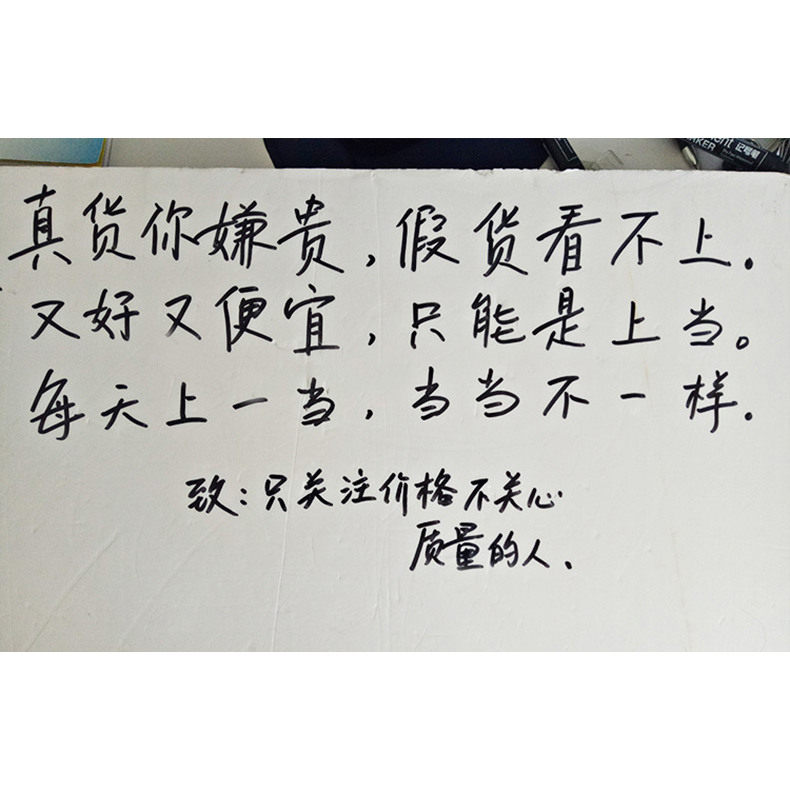 真货你嫌贵，假货看不上。
又好又便宜，只能是上当。
每天上一当，当当不一样.
致：只关注价格不关心
质量的人.
MARKER 记号笔